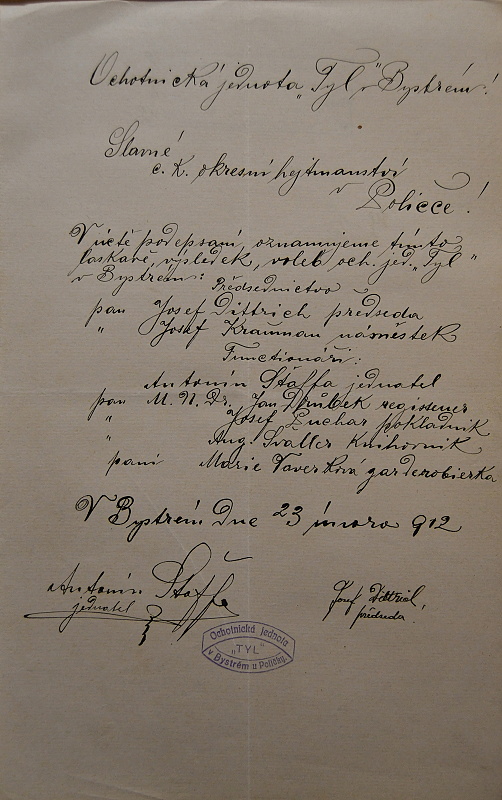 Ochotnická jednota „Tyl" v Bystrém!
Slavné
c. k. okresní hejtmanství
v
Poličce!
V úctě podepsaní, oznamujeme tímto
laskavě, výsledek, voleb och. jed. „Tyl"
v Bystrém:
Předsednictvo
pan Josef Dittrich předseda
" Josef Krauman náměstek
Functionáři:
Antonín Štaffa jednatel
pan M. N. Dr. Jan Drubek regisseur
" Josef Puchar pokladník
" Aug. Svaller knihovník
paní Marie Taverková garderobierka
V Bystrém dne 23 února 912
Antonín Štaffa
jednatel
Josef Dittrich,
předseda!
Ochotnická jednota
„TYL"
v Bystrém u Poličky.